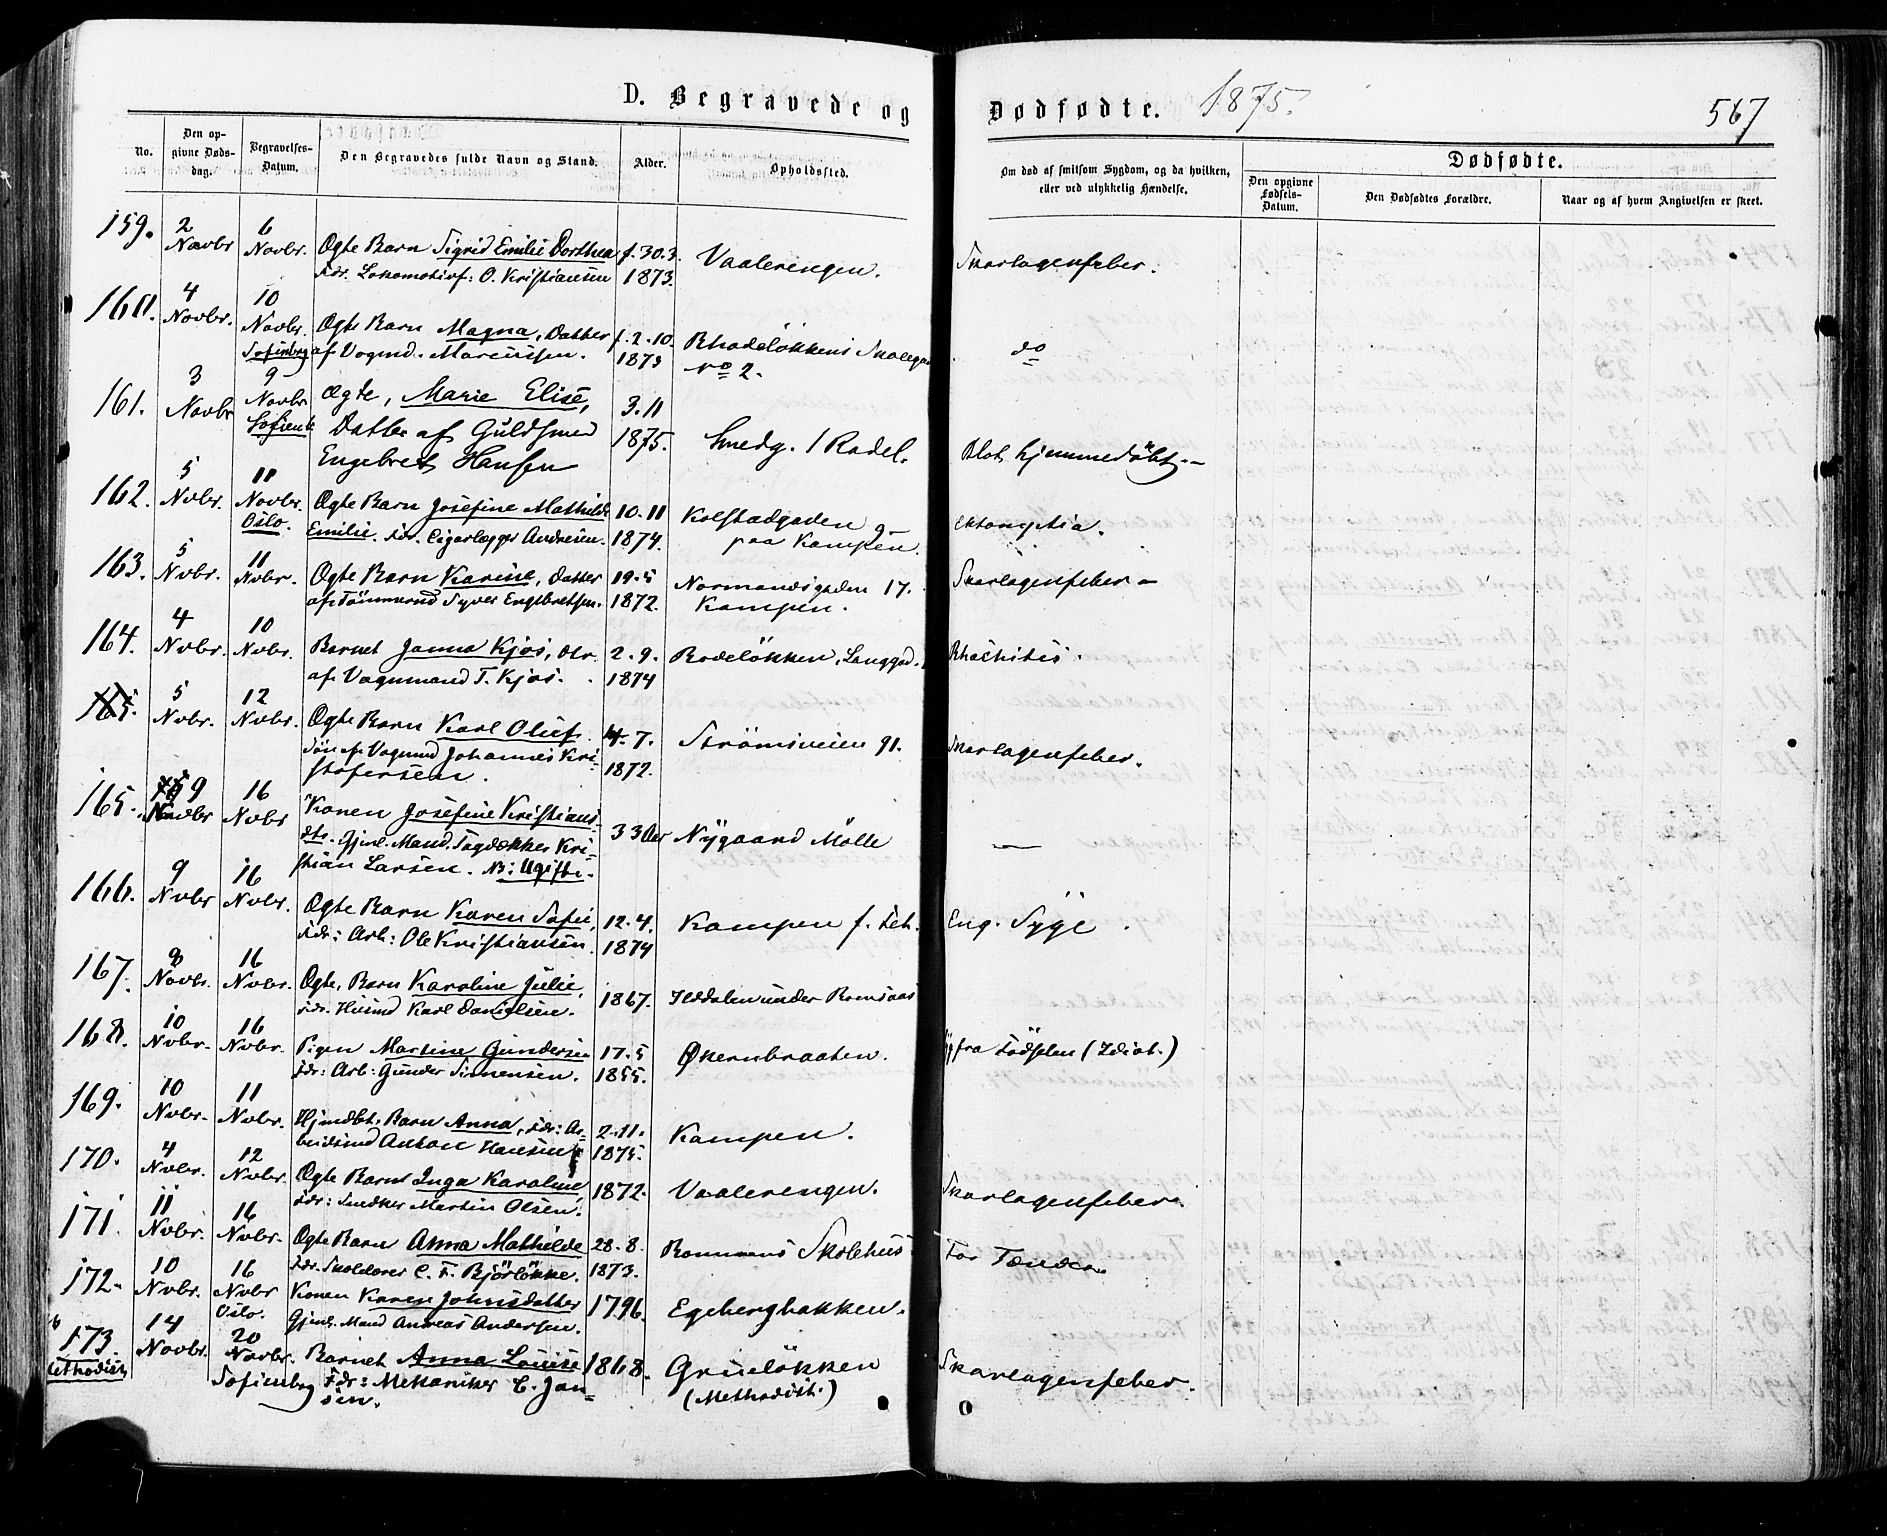 D. Begravede og Dødfødte. 1875. 567
No.
Den opgivne Døds-dag.
Begravelses-Datum.
Den Begravedes fulde Navn og Stand.
Alder.
Opholdssted.
Om død af smitsom Sygdom, og da hvilken, eller ved ulykkelig Hændelse.
Dødfødte.
Den opgivne Fødsels-Datum.
Den Dødfødtes Forældre.
Naar og af hvem Angivelsen er skeet.
159. 2 Novbr 6 Novbr. Ægte Barn Sigrid Emilie Dorthea f. 30.3. Vaalerengen. Skarlagensfeber.
Fdr. Lokomotivf: O. Kristiansen 1873.
160. 4 Novbr. 10 Novbr. Ægte Barn Magna, Datter f. 2.10. Rhodeløkkens do
Sofienberg af Vognmd. Marcussen. 1873 No 2.
161. 3 Novbr 9 Novbr Ægte, Marie Elise, 3.11
Sofienb Datter af Guldsmed 1875. Smedg. 1 Rodel. Blot hjemmedöbt.
Engebret Hansen
162. 5 Nvbr. 11 Novbr. Ægte Barn Josefine Mathilde 10.11 Kolstadgaden 9
Oslo. Emilie. Fdr. Cigarlægger Andresen. 1874. paa Kampen.
163. 5 Nvbr. 11 Nvbr. Ægte Barn Karine, Datter 19.5 Normandsgaden 17. Skarlagensfeber
af Tömmermd Syver Engebretsen. 1872. Kampen.
164. 4 Nvbr. 10 Nvbr. Barnet Janna Kjos, Dtr. 2.9. Rodelökken, Langgad. Rhachitis.
af Vognmand T. Kjos. 1874
165. 5 Nvbr. 12 Nvbr. Ægte Barn Karl Oluf 4.7. Strömsveien 91. Skarlagensfeber.
Sön af Vognmd Johannes Kri-
stofersen. 1872.
165. 9 Novbr 16 Nvbr Konen Josefine Kristians-
dtr. Gjenl. Mand. Tagdækker Kri- 33 Aar Nygaard Mölle —
stian Larsen. NB: Ugift.
166. 9 Nvbr 16 Nvbr. Ægte Barn Karen Sofie, 12.4. Kampen Eng. Syge.
Fdr: Arb: Ole Kristiansen. 1874
167. 9 Novbr. 16 Nvbr. Ægte, Barn Karoline Julie, 1867. under Romsaas
Fdr. Husmd Karl Danielsen.
168. 10 Nvbr. 16 Nvbr. Pigen Martine Gundersen 17.5 Økernbraaten. fra Födselen (Idiot.)
Fdr: Arb: Gunder Simensen. 1855.
169. 10 Nvbr. 11 Nvbr. Hjmdbt. Barn Anna, Fdr: Ar- 2.11. Kampen.
beidsmd Anton Hansen 1875.
170. 4 Nvbr. 12 Nvbr. Ægte Barn Inga Karoline, 1872. Vaalerengen. Skarlagensfeber.
Fdr: Snedker Martin Olsen.
171. 11 Nvbr. 16 Nvbr. Ægte Barn Anna Mathilde 28.8. Rommens Skolehus For Tænder
Fdr. Skolelærer C. F. Björlökke. 1873.
172. 10 Nvbr. 16 Nvbr Konen Karen Johnsdatter 1796. Egeberghakken.
Oslo. Gjenl. Mand Andreas Andersen.
173. 14 Novbr. 20 Novbr. Barnet Anna Louise 1868. Grüelökken Skarlagensfeber.
Methodist Sofienberg Fdr: Mekaniker C. Jan- (Methodist.)
sen.